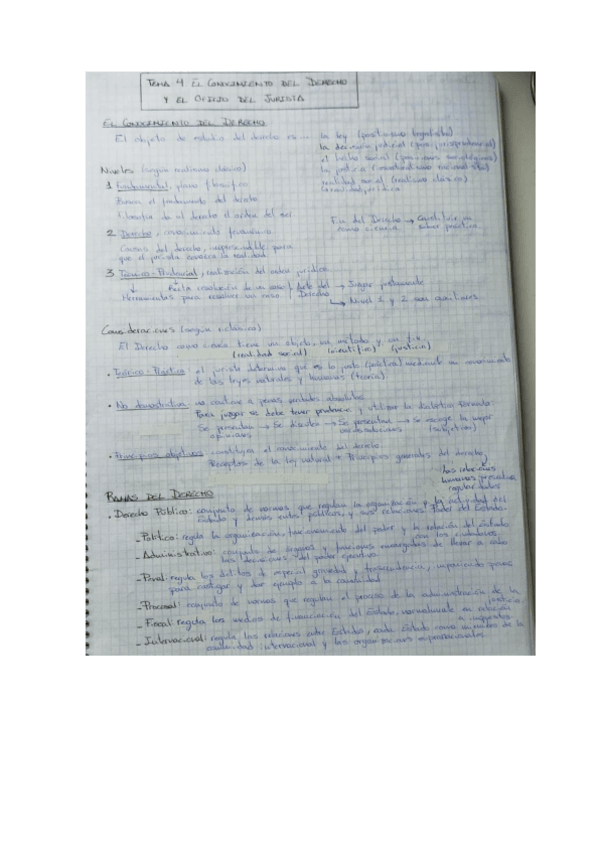 TEMA 4 EL CONOCIMIENTO DEL DERECHO
Y EL OFICIO DEL JURISTA
EL CONOCIMIENTO DEL DERECHO
El objeto de estudio del derecho es — la ley (positivismo legalista)
la decisión judicial (posit. jurisprudencial)
el hecho social (posiciones sociológicas)
la justicia (iusnaturalismo racionalista)
realidad social (realismo clásico)
Niveles (según realismo clásico)
1 Fundamental, plano filosófico
Buscan el fundamento del derecho
Filosofía da al derecho el orden del ser
Fin del Derecho → Constituir un
como ciencia saber práctico.
2 Derecho, conocimiento
Causas del derecho, indispensable para
que el jurista conozca la realidad
3 Técnico-Prudencial, realización del orden jurídico
Recta resolución de un caso / Arte del → Juzgar justamente
Herramientas para resolver un caso / Derecho
→ Nivel 1 y 2 son auxiliares
Consideraciones (según r. clásico)
El Derecho como ciencia tiene un objeto, un método y un fin.
(realidad social) (científico) (justicia)
• Teórico-Práctico: el jurista determina que es lo justo (práctica) mediante su conocimiento
de las leyes naturales y humanas (teoría).
• No demostrativa: no conduce a penas verdades absolutas
Para juzgar se debe tener prudencia y utilizar la dialéctica formato:
Se presentan → Se discuten → Se presentan → Se escoge la mejor
opiniones (subjetivo)
• Principios objetivos: constituyen el conocimiento del derecho.
Preceptos de la ley natural + Principios generales del derecho
las relaciones
humanas
RAMAS DEL DERECHO
• Derecho Público: conjunto de normas que regulan la organización y la actividad del
Estado y demás entes públicos, y sus relaciones. Poder del Estado.
- Político: regula la organización, funcionamiento del poder y la relación del Estado
con los ciudadanos
- Administrativo: conjunto de órganos y funciones encargados de llevar a cabo
las decisiones del poder ejecutivo.
- Penal: regula los delitos de especial gravedad y trascendencia, imponiendo penas
para castigar y dar ejemplo a la sociedad
- Procesal: conjunto de normas que regulan el proceso de la administración de la
justicia.
- Fiscal: regula los medios de financiación del Estado, normalmente en relación
a impuestos.
- Internacional: regula las relaciones entre Estados, cada Estado como miembro de la
comunidad internacional y las organizaciones supranacionales.